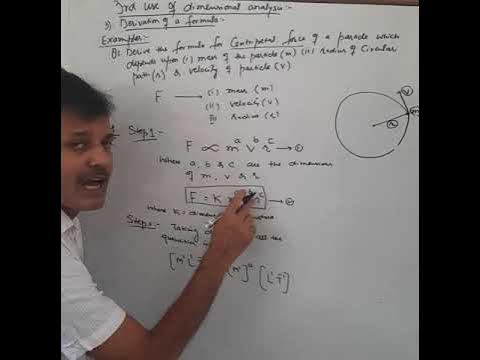 3rd use of dimensional analysis:-
3) Derivation of a formula:-
Examples:-
Q1. Derive the formula for Centripetal force of a particle which
depends upon (i) mass of the particle (m) (ii) radius of Circular
path (r) & velocity of particle (v)
F → (i) mass (m)
(ii) velocity (v)
(iii) radius (r)
v
m
(r)
Step 1:-
F ∝ m^a v^b r^c → ①
where a, b & c are the dimensions
of m, v & r
F = K c → ②
where K = dimen
Step 2:- Taking
all the
[M' L' (M')^a [L' T^-1]